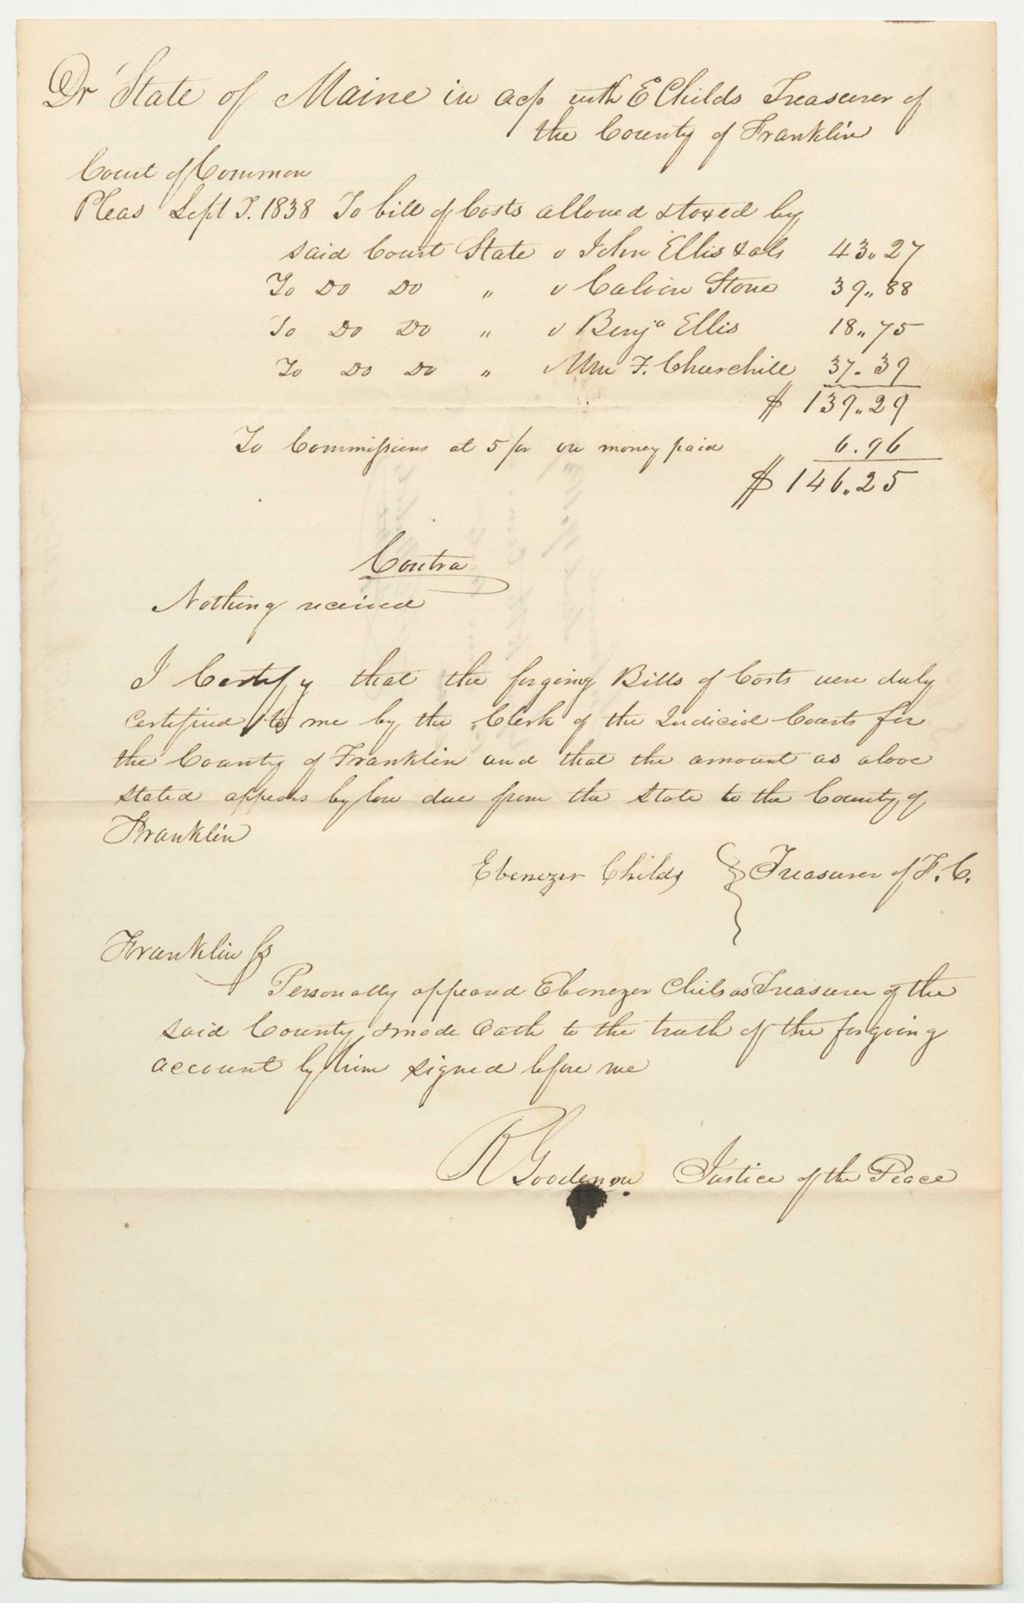 Dr State of Maine in acp with E Childs Treasurer of
the County of Franklin
Court of Common
Pleas Sept T. 1838 To bill of Costs allowed & taxed by
said Court State v John Ellis & als 43.27
To Do Do " v Calvin Stone 39.,88
To Do Do " v Benja Ellis 18.,75
To Do Do " Wm F. Churchill 37.39
$ 139.,29
To Commissions at 5 pr on money paid 6.96
$ 146.25
Contra
Nothing received
I Certify that the forgoing Bills of Costs were duly
certified to me by the Clerk of the Judicial Courts for
the County of Franklin and that the amount as above
stated appears by law due from the State to the County of
Franklin
Ebenezer Childs } Treasurer of F. C.
Franklin ss
Personally appeared Ebenezer Childs as Treasurer of the
said County & made Oath to the truth of the forgoing
account by him signed before me
R Goodenow Justice of the Peace